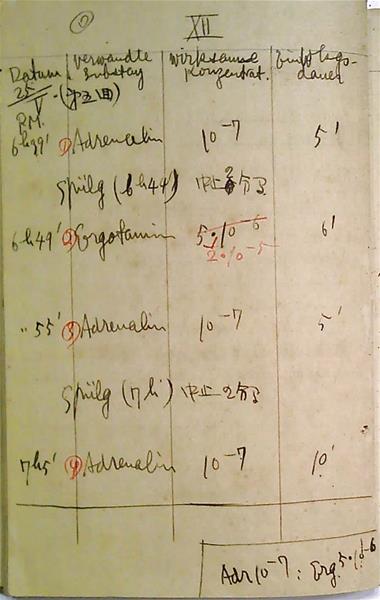 XII
Datum verwandte Substanz wirksame Konzentrat. Einflussgsdauer
25/V. (第五回)
P.M.
6h39' ① Adrenalin 10⁻⁷ 5'
Spülg (6h44') 中止 2分間
6h49' ② Ergotamin 5·10⁻⁶ 6'
2·10⁻⁵
〃 55' ③ Adrenalin 10⁻⁷ 5'
Spülg (7h) 中止 2分間
7h5' ④ Adrenalin 10⁻⁷ 10'
Adr 10⁻⁷ : Erg. 5·10⁻⁶